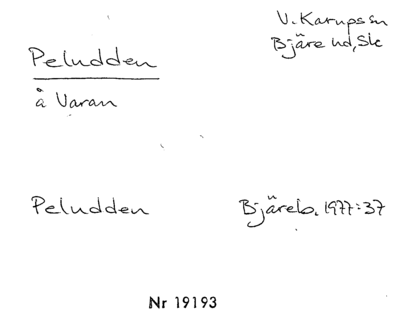 Peludden
V. Karups sn
Bjäre hd, Sk
å Varan
Peludden
Bjäreb. 1977:37
Nr 19193